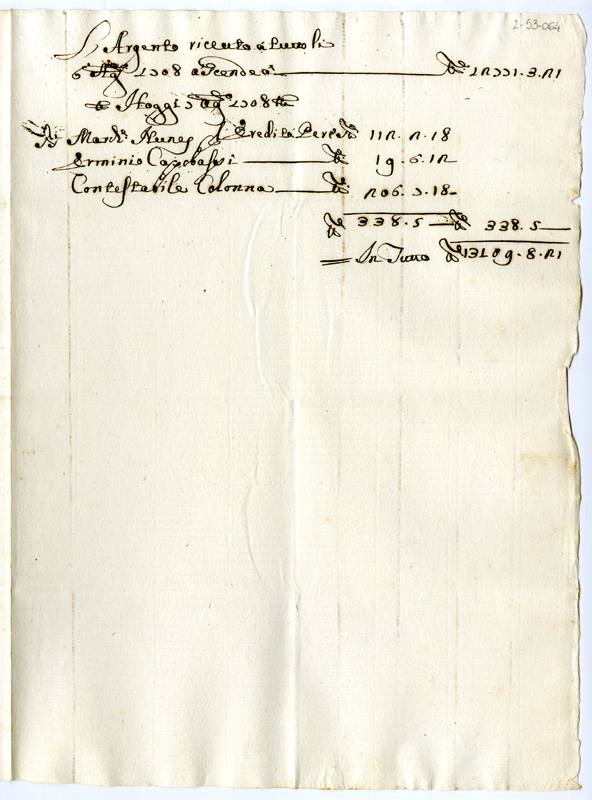 2-53-064
L'Argento riceuto a tutto li
6 Agº 1708 ascendea ℔ 12771.3.21
E Hoggi 7 Agº 1708
Mardº Nunes Eredita Peres ℔ 112.2.18
Erminio ℔ 19.6.12
Contestabile Colonna ℔ 206.7.18
℔ 338.5 ℔ 338.5
In Tutto ℔ 13109.8.21